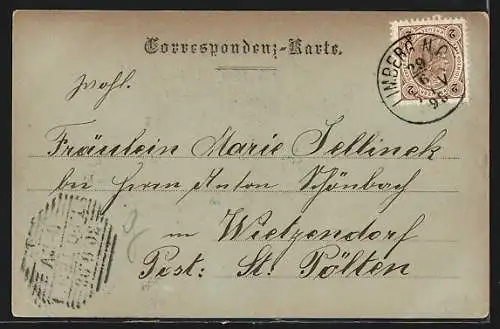 Correspondenz-Karte.
IMBERG N.Ö.
29
6
V
98
2 2
2 2
Wohl.
Fräulein Marie Jellinek
bei Herrn Anton Schönbach
in Wietzendorf
Post: St. Pölten